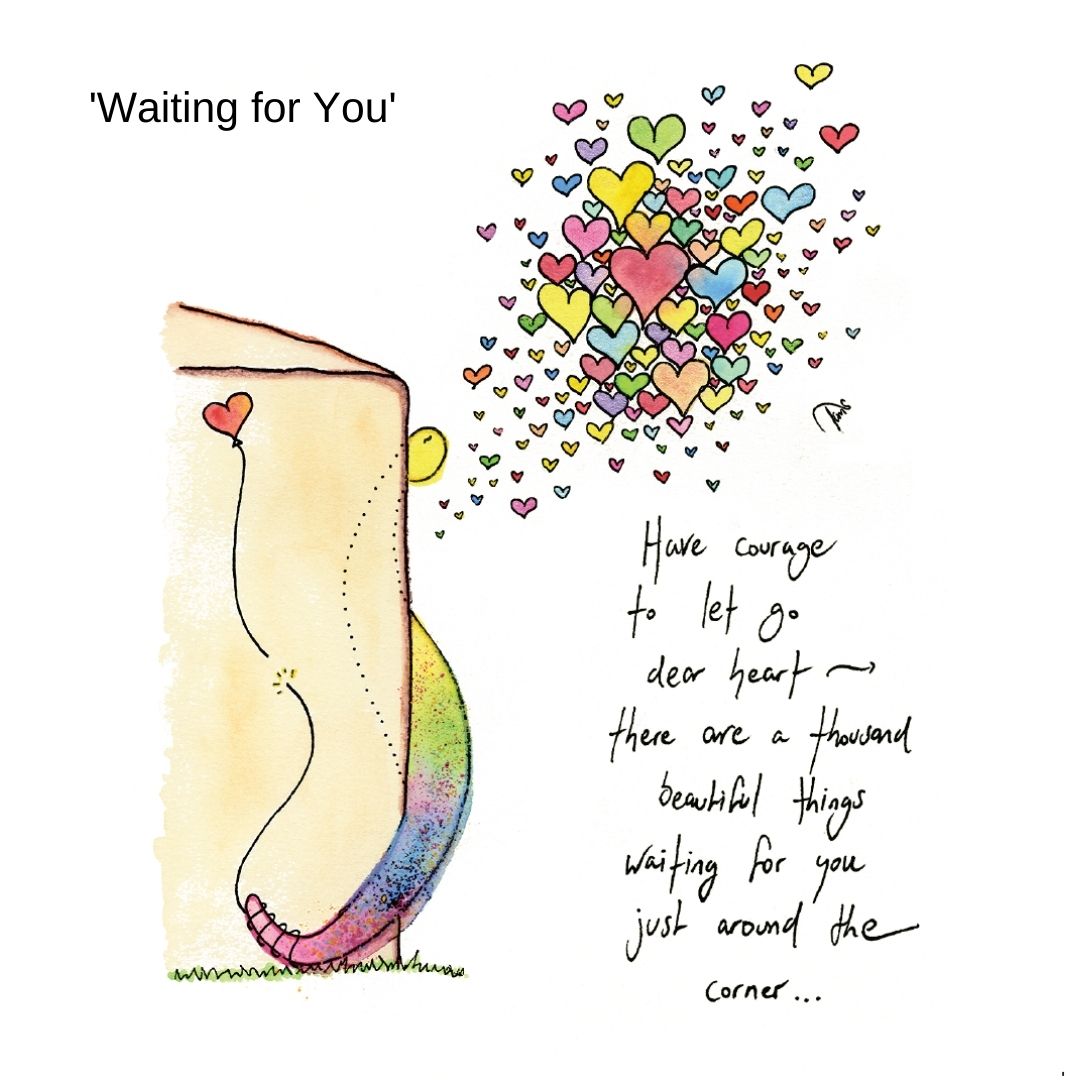 'Waiting for You'
Have courage
to let go
dear heart →
there are a thousand
beautiful things
waiting for you
just around the
corner...